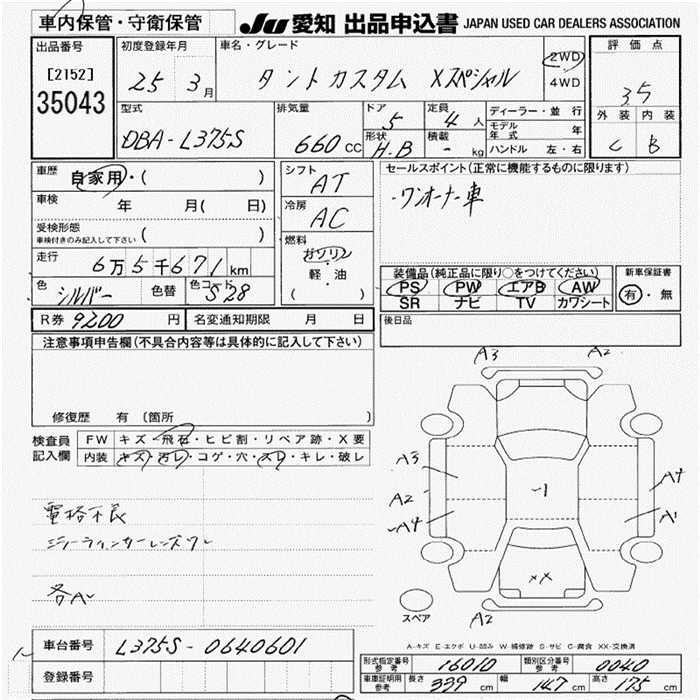 車内保管・守衛保管
JU 愛知 出品申込書 JAPAN USED CAR DEALERS ASSOCIATION
出品番号
[2152]
35043
初度登録年月
25 3月
車名・グレード
タントカスタム Xスペシャル
2WD
4WD
評価点
3.5
外装 内装
C B
型式
DBA-L375S
排気量
660 CC
ドア
5
定員
4 人
形状
H.B
積載
- kg
ディーラー・並行
モデル年式 年
ハンドル 左・右
車歴
自家用・( )
車検 年 月( 日)
受検形態
車検付きのみ記入して下さい ( )
走行
6万5千671km
色
シルバー
色替
色コード
S28
シフト
AT
冷房
AC
燃料
ガソリン
軽・油
( )
セールスポイント(正常に機能するものに限ります)
・ワンオーナー車
装備品(純正品に限り○をつけてください)
PS PW エアB AW
SR ナビ TV カワシート
新車保証書
有・無
R券 9200 円
名変通知期限 月 日
後日品
注意事項申告欄(不具合内容等は具体的に記入して下さい)
修復歴 有 〔箇所
検査員
記入欄
FW キズ・飛石・ヒビ割・リペア跡・X要
内装 キズ・汚レ・コゲ・穴・スレ・キレ・破レ
電格不良
各A
A3 A2
A3
A2
A4
A4
A1
-1
XX
スペア
A2
A-キズ E-エクボ U-凹み W-補修跡 S-サビ C-腐食 XX-交換済
車台番号 L375S-0640601
登録番号
形式指定番号 参考 16010
類別区分番号 参考 0040
車庫証明用 参考 長さ 339 cm 幅 147 cm 高さ 175 cm